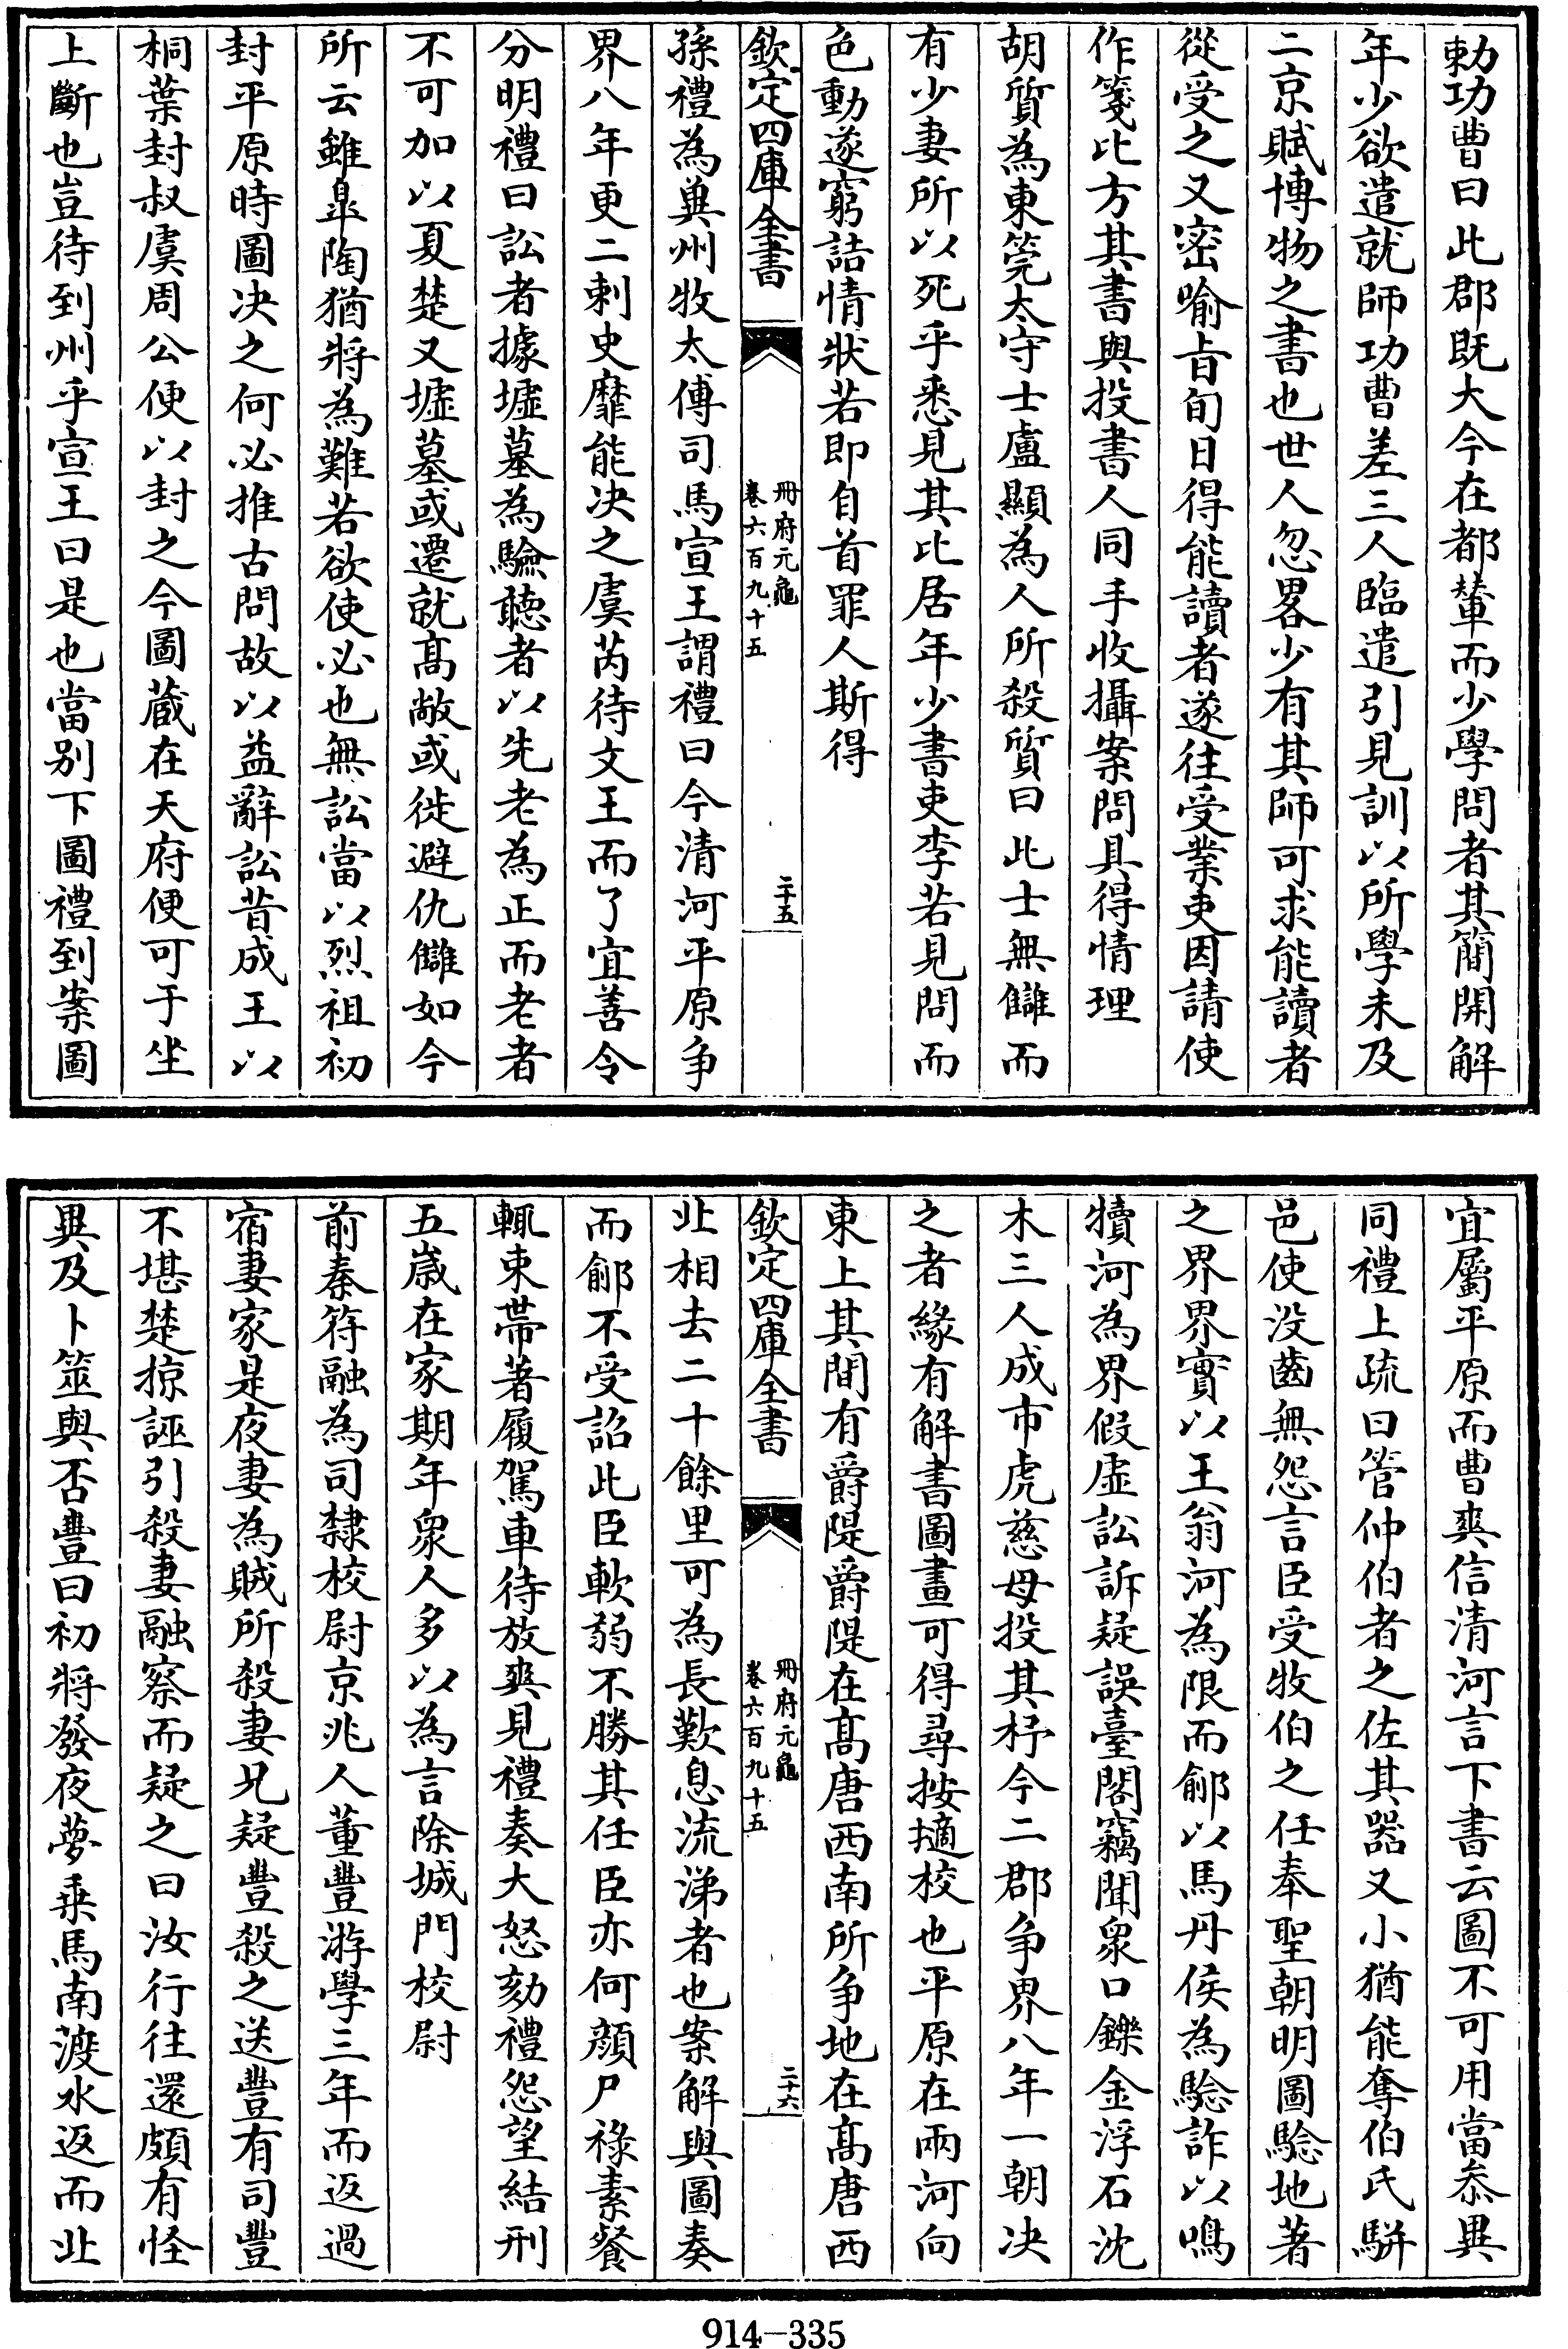 勅功曹曰此郡既大今在都輦而少學問者其簡開解
年少欲遣就師功曹差三人臨遣引見訓以所學未及
二京賦博物之書也世人忽畧少有其師可求能讀者
從受之又密喻㫖旬日得能讀者遂往受業吏因請使
作箋比方其書與投書人同手收攝案問具得情理
胡質為東筦太守士盧顯為人所殺質曰此士無讎而
有少妻所以死乎悉見其比居年少書吏李若見問而
色動遂窮詰情狀若即自首罪人斯得
欽定四庫全書
冊府元龜
卷六百九十五
二十五
孫禮為兾州牧太傅司馬宣王謂禮曰今清河平原争
界八年更二刺史靡能决之虞芮待文王而了宜善令
分明禮曰訟者據墟墓為驗聽者以先老為正而老者
不可加以夏楚又墟墓或遷就髙敞或徙避仇讎如今
所云雖臯陶猶將為難若欲使必也無訟當以烈祖初
封平原時圖决之何必推古問故以益辭訟昔成王以
桐葉封叔虞周公便以封之今圖蔵在天府便可于坐
上斷也豈待到州乎宣王曰是也當别下圖禮到案圖
宜屬平原而曹爽信清河言下書云圖不可用當叅異
同禮上疏曰管仲伯者之佐其器又小猶能奪伯氏駢
邑使没齒無怨言臣受牧伯之任奉聖朝明圖驗地著
之界界實以王翁河為限而鄃以馬丹侯為驗詐以鳴
犢河為界假虚訟訴疑誤臺閣竊聞衆口鑠金浮石沈
木三人成市虎慈母投其杼今二郡争界八年一朝决
之者緣有解書圖畫可得尋按擿校也平原在兩河向
東上其間有爵隄爵隄在髙唐西南所争地在髙唐西
欽定四庫全書
冊府元龜
卷六百九十五
二十六
北相去二十餘里可為長歎息流涕者也案解與圖奏
而鄃不受詔此臣軟弱不勝其任臣亦何顔尸祿素餐
輒束帶著履駕車待放爽見禮奏大怒劾禮怨望結刑
五歳在家期年衆人多以為言除城門校尉
前秦符融為司隸校尉京兆人董豐游學三年而返過
宿妻家是夜妻為賊所殺妻兄疑豐殺之送豐有司豐
不堪楚掠誣引殺妻融察而疑之曰汝行往還頗有怪
異及卜筮與否豊曰初將發夜夢乗馬南渡水返而北
914-335